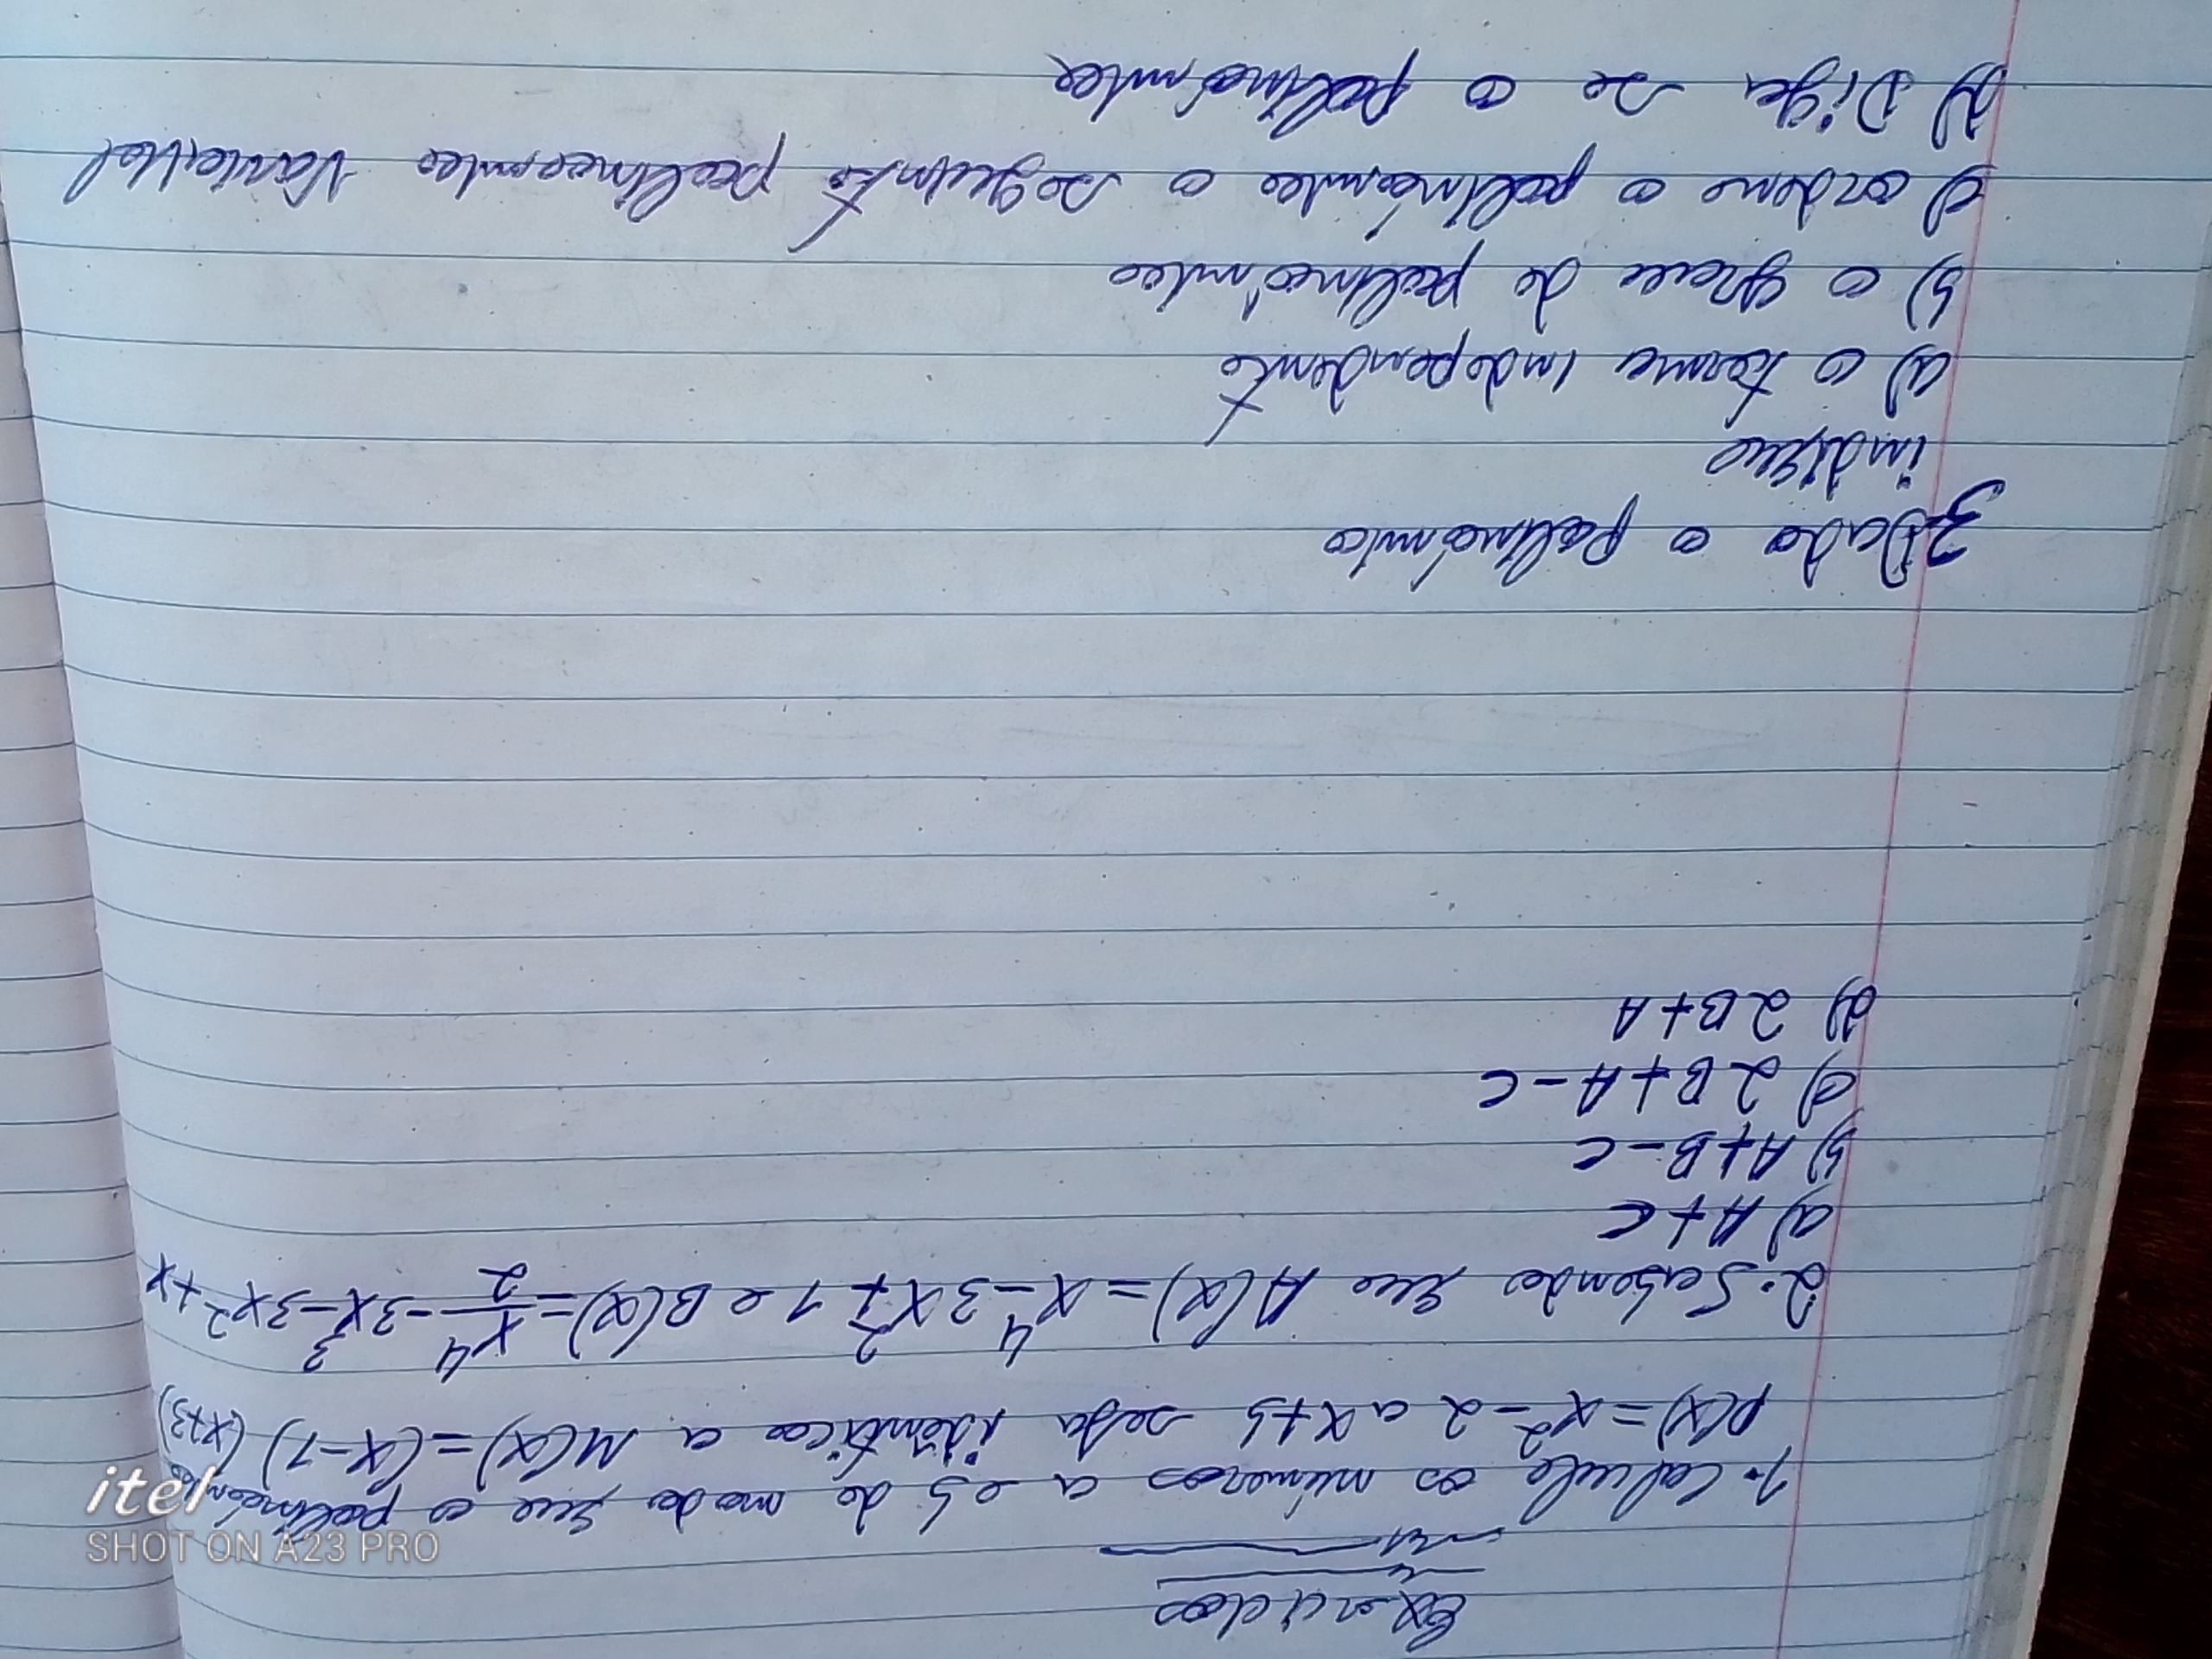 Exercicios
1. Calcule os números a e b de modo que o polinómio
P(x) = x² - 2ax + b seja idêntico a M(x) = (x-1) (x+3)
2. Sabendo que A(x) = x⁴ - 3x² + 1 e B(x) = x⁴/2 - 3x³ - 3x² + x
a) A + C
b) A + B - C
c) 2B + A - C
d) 2B + A
3 Dado o polinómio
indique
a) o termo independente
b) o grau do polinómio
c) ordene o polinómio o seguinte polinomio
d) Diga se o polinómio
itel
SHOT ON A23 PRO